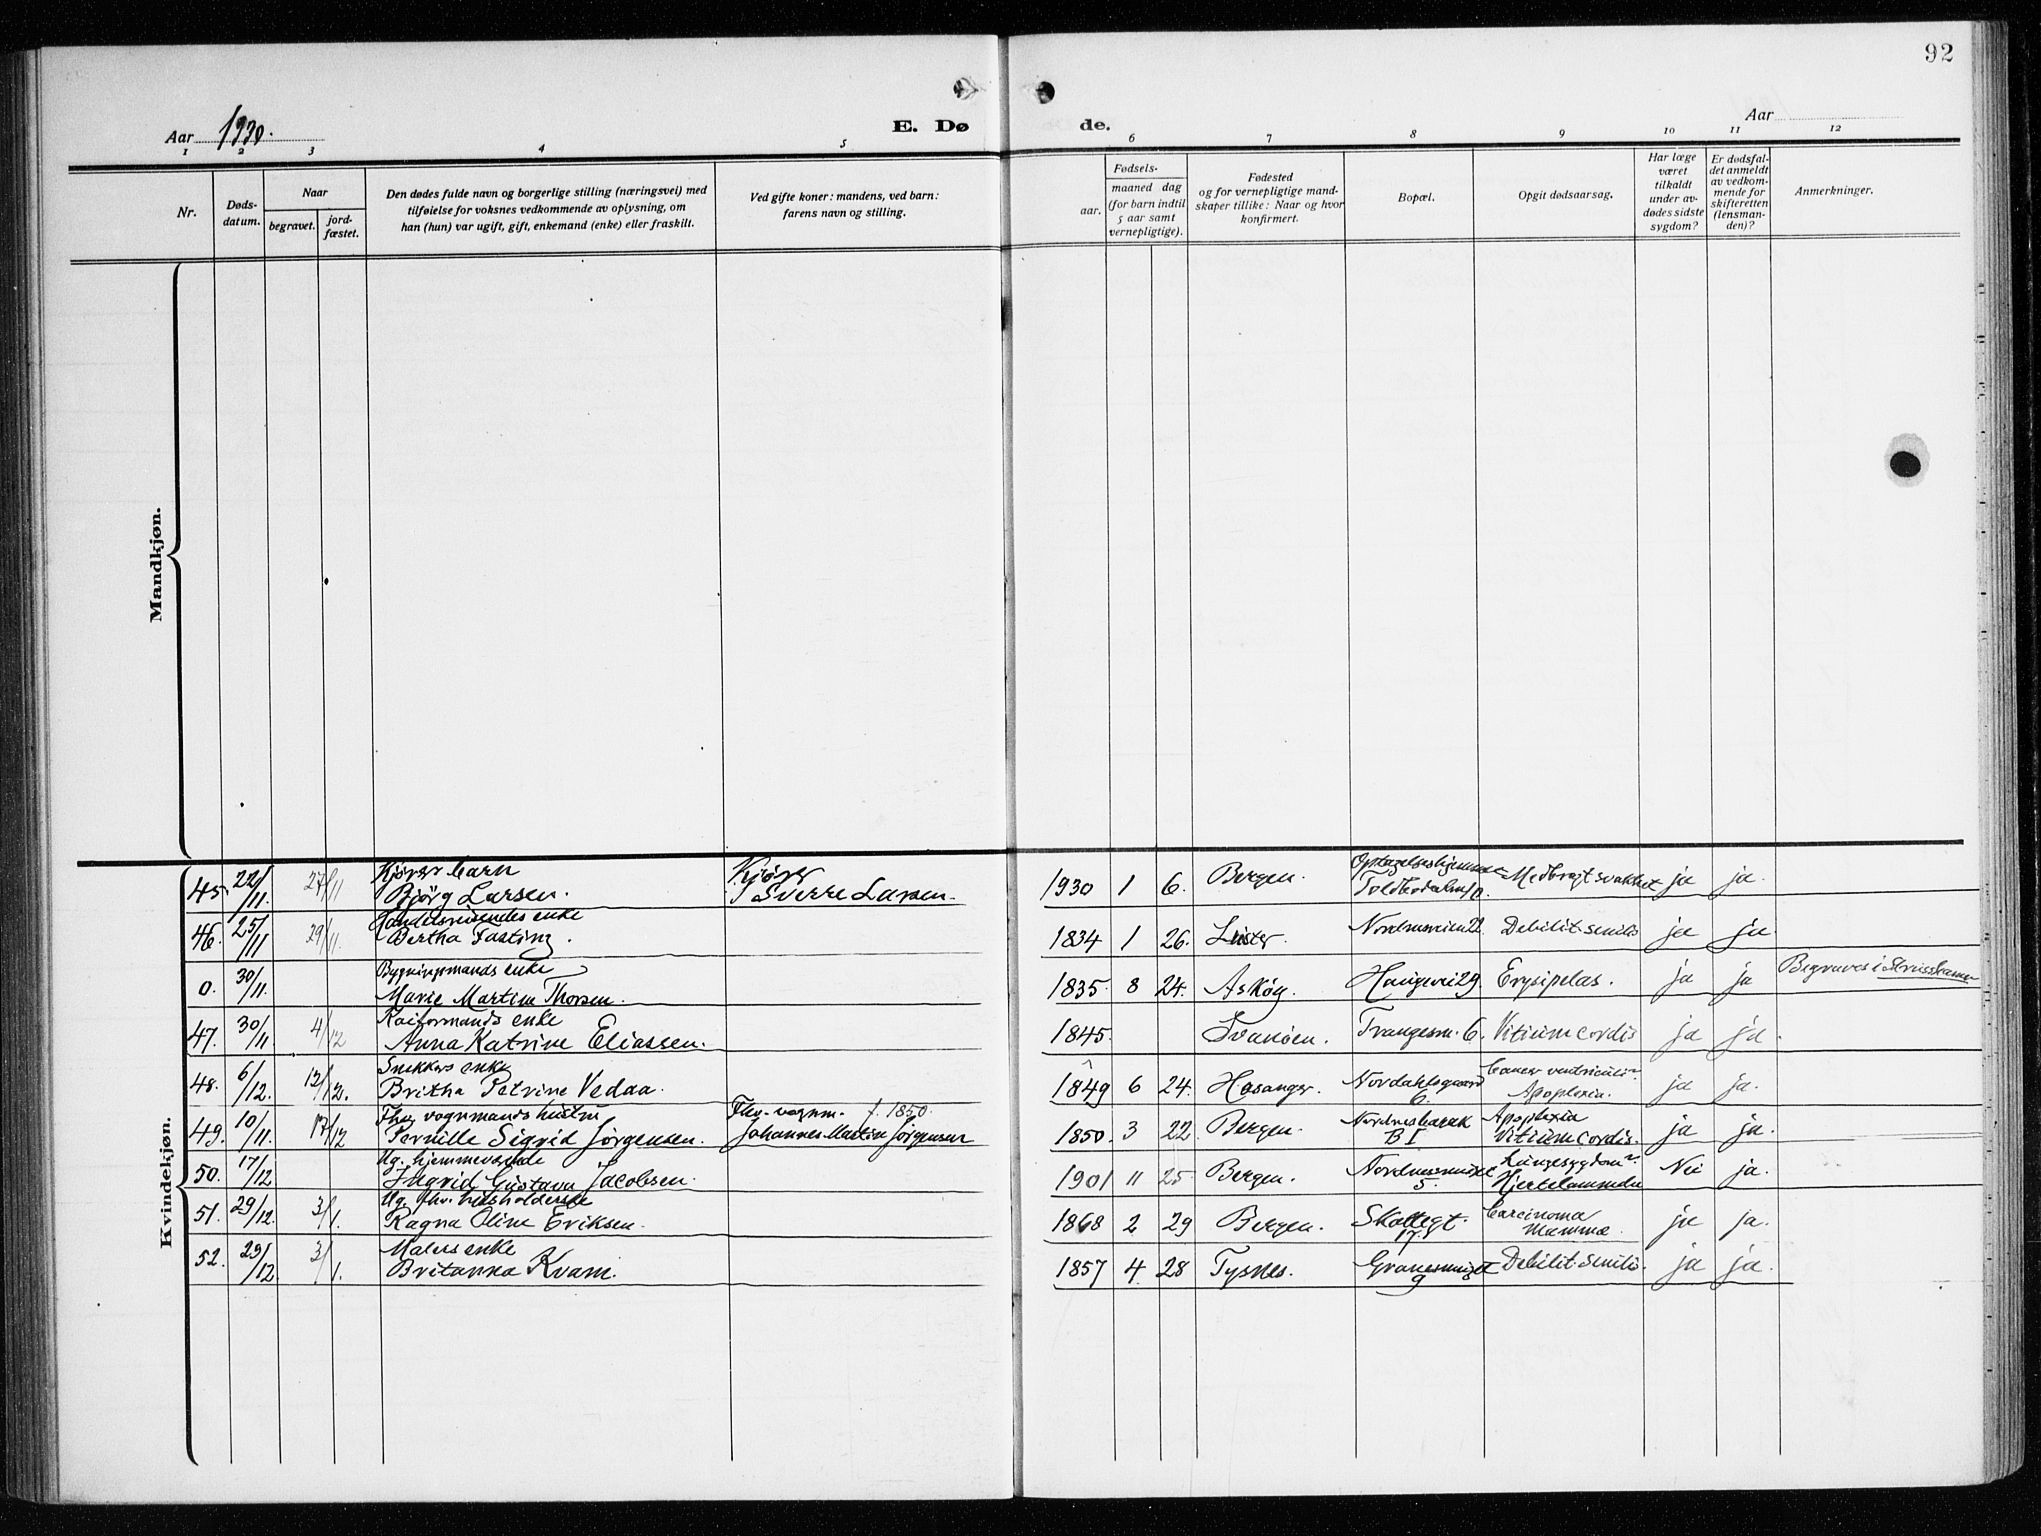 92
Aar 1930.
E. Døde.
Aar
1 2 3 4 5 6 7 8 9 10 11 12
Nr.
Døds-
datum.
Naar
begravet.
jord-
fæstet.
Den dødes fulde navn og borgerlige stilling (næringsvei) med
tilføielse for voksnes vedkommende av oplysning, om
han (hun) var ugift, gift, enkemand (enke) eller fraskilt.
Ved gifte koner: mandens, ved barn:
farens navn og stilling.
Fødsels-
aar.
maaned dag
(for barn indtil
5 aar samt
vernepligtige).
Fødested
og for vernepligtige mand-
skaper tillike: Naar og hvor
konfirmert.
Bopæl.
Opgit dødsaarsag.
Har læge
været
tilkaldt
under av-
dødes sidste
sygdom?
Er dødsfal-
det anmeldt
av vedkom-
mende for
skifteretten
(lensman-
den)?
Anmerkninger.
Mandkjøn.
Kvindekjøn.
45. 22/11 27/11 Kjørers barn Bjørg Larsen. Kjører Sverre Larsen. 1930 1 6. Bergen. Medbragt svakhet ja ja.
46. 25/11 29/11. Handelsreisendes enke Bertha Fasting. 1834 1 26. Luster. Nordnesveien 22. Debilit. senilis ja ja
0. 30/11. Bygningsmands enke Marie Martine Thorsen. 1835. 8 24. Askøy. Haugevei 29. Erysipelas. ja ja Begraves i
47. 30/11 4/12 Kaiformands enke Anna Katrine Eliassen. 1845. Svanöen. Trangesm. 6. Vitium cordis ja ja.
48. 6/12. 12/12. Snekkers enke Britha Petrine Vedaa. 1849 6 24. Hosanger. Nordahlsgaard 6. Cancer ventriculi. Apoplexia. ja ja.
49. 10/11. 17/12 Fhv. vognmands hustru Pernille Sigrid Jørgensen. Fhv. vognm. f. 1850. Johannes Martin Jørgensen 1850. 3 22. Bergen. Nordnesbarak B I Apoplexia Vitium cordis. ja ja.
50. 17/12 Ug. hjemmeværende Ingrid Gustava Jacobsen. 1901 11 25. Bergen. 5. Lungesygdom Hjertelammelse Nei ja.
51. 29/12. 3/1. Ug. fhv. husholderske Ragna Oline Eriksen. 1868 2 29 Bergen. Skottegt. 17. Carcinoma Mamma ja ja.
52. 29/12 3/1. Malers enke Britanna Kvam. 1857 4 28 Tysnes. 9 Debilit. senilis. ja ja.